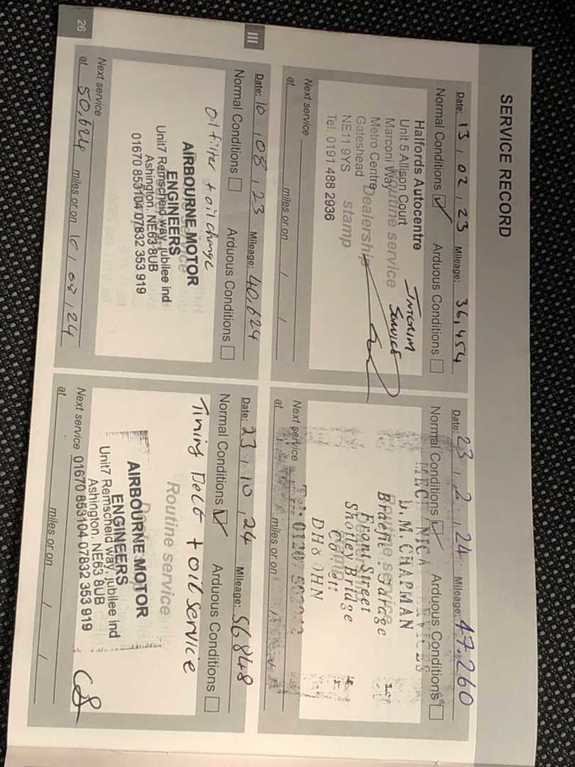 SERVICE RECORD
Date: 13, 02, 23 Mileage: 36,454
Normal Conditions ☑ Arduous Conditions ☐
Halfords Autocentre
Unit 5 Allison Court
Marconi Way
Routine service
Metro Centre
Dealership
Gateshead
NE11 9YS
stamp
Tel. 0191 488 2936
INTERIM
SERVICE
Next service
at miles or on / /
Date: 23, 2, 24 Mileage: 47,260
Normal Conditions ☑ Arduous Conditions ☐
D.M. CHAPMAN
Routine service
Front Street
DH8
Next service
at miles or on
III
Date: 10, 08, 23 Mileage: 40,624
Normal Conditions ☐ Arduous Conditions ☐
Oil filter + oil change
AIRBOURNE MOTOR
ENGINEERS
Unit7 Remscheid way, jubilee ind
Ashington, NE63 8UB
01670 853104 07832 353 919
Next service
at 50,624 miles or on 10, 08, 24
Date: 23, 10, 24 Mileage: 56848
Normal Conditions ☑ Arduous Conditions ☐
Timing Belt + oil service
Routine service
AIRBOURNE MOTOR
ENGINEERS
Unit7 Remscheid way, jubilee ind
Ashington, NE63 8UB
01670 853104 07832 353 919
Next service
at miles or on / /
26